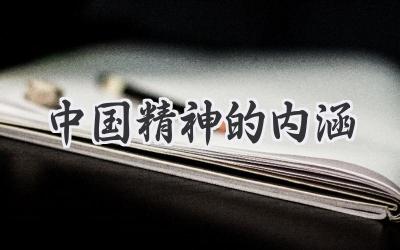 中国精神的内涵